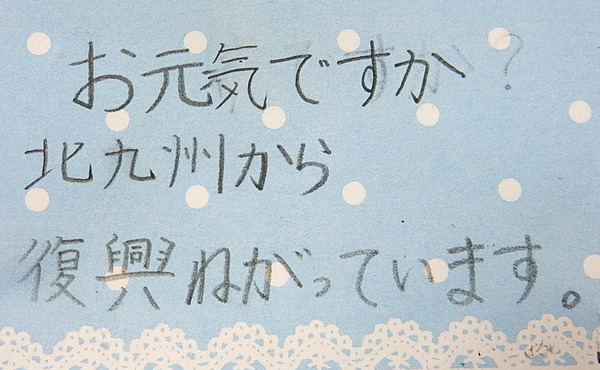 お元気ですか?
北九州から
復興ねがっています。